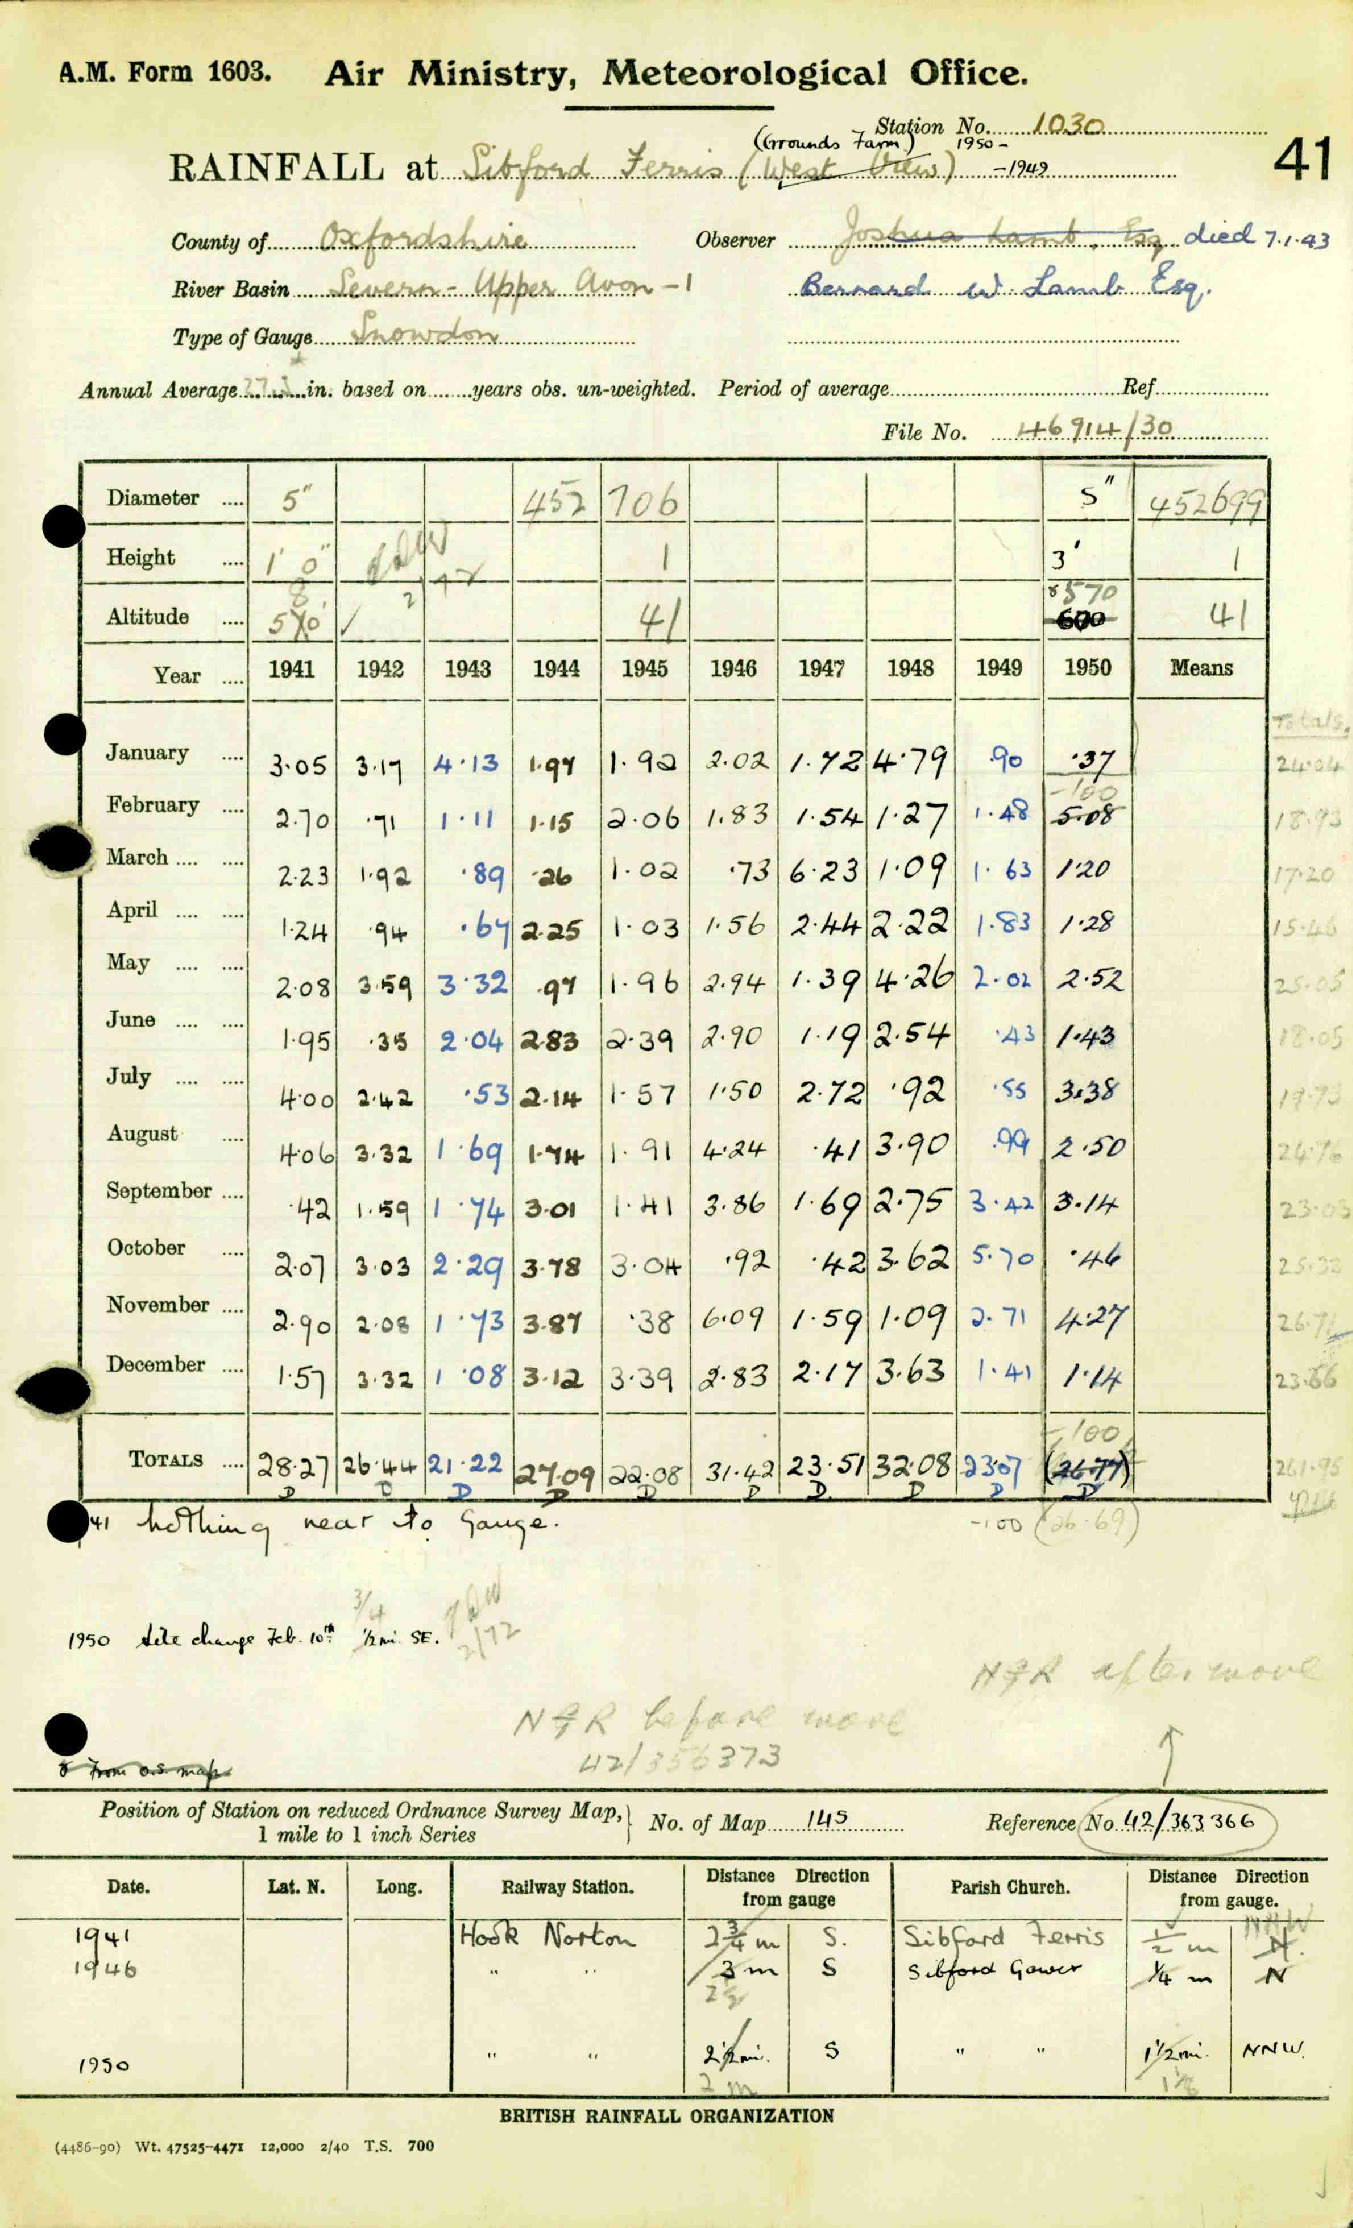 A.M. Form 1603. Air Ministry, Meteorological Office.
Station No. 1030
(Grounds Farm) 1950-
RAINFALL at Sibford Ferris (West View) -1949
41
County of Oxfordshire Observer Joshua Lamb, Esq died 7.1.43
River Basin Severn - Upper Avon - 1 Bernard W. Lamb Esq.
Type of Gauge Snowdon
Annual Average in. based on years obs. un-weighted. Period of average Ref
File No. 46914/30
Diameter .... 5" 452 706 5" 452699
Height .... 1' 0" 1 3' 1
8 2/72 570
Altitude .... 570' ✓ 41 600 41
Year .... 1941 1942 1943 1944 1945 1946 1947 1948 1949 1950 Means
Totals.
January .... 3.05 3.17 4.13 1.97 1.92 2.02 1.72 4.79 .90 .37 24.04
-100
February .... 2.70 .71 1.11 1.15 2.06 1.83 1.54 1.27 1.48 5.08 18.93
March .... .... 2.23 1.92 .89 .26 1.02 .73 6.23 1.09 1.63 1.20 17.20
April .... .... 1.24 .94 .67 2.25 1.03 1.56 2.44 2.22 1.83 1.28 15.46
May .... .... 2.08 3.59 3.32 .97 1.96 2.94 1.39 4.26 2.02 2.52 25.05
June .... .... 1.95 .35 2.04 2.83 2.39 2.90 1.19 2.54 .43 1.43 18.05
July .... .... 4.00 2.42 .53 2.14 1.57 1.50 2.72 .92 .55 3.38 19.73
August .... 4.06 3.32 1.69 1.74 1.91 4.24 .41 3.90 .99 2.50 24.76
September .... .42 1.59 1.74 3.01 1.41 3.86 1.69 2.75 3.42 3.14 23.03
October .... 2.07 3.03 2.29 3.78 3.04 .92 .42 3.62 5.70 .46 25.33
November .... 2.90 2.08 1.73 3.87 .38 6.09 1.59 1.09 2.71 4.27 26.71
December .... 1.57 3.32 1.08 3.12 3.39 2.83 2.17 3.63 1.41 1.14 23.66
-100
TOTALS .... 28.27 26.44 21.22 27.09 22.08 31.42 23.51 32.08 23.07 (26.77) 261.95
D D D D D D D D D D
41 Nothing near to gauge. -100 (26.69)
3/4
1950 Site change Feb. 10th 1/2 mi. SE. 2/72
NGR after move
NGR before move
42/356373
From O.S. map
Position of Station on reduced Ordnance Survey Map, 1 mile to 1 inch Series } No. of Map 145 Reference No. 42/363366
Date. Lat. N. Long. Railway Station. Distance Direction from gauge Parish Church. Distance Direction from gauge.
NNW
1941 Hook Norton 2 3/4 m S. Sibford Ferris 1/2 m N.
1946 " " 3 m S Sibford Gower 1/4 m N
2 1/2
1950 " " 2 1/2 mi. S " " 1 1/2 mi. NNW.
2 m 1 1/8
BRITISH RAINFALL ORGANIZATION
(4486-90) Wt. 47525-4471 12,000 2/40 T.S. 700